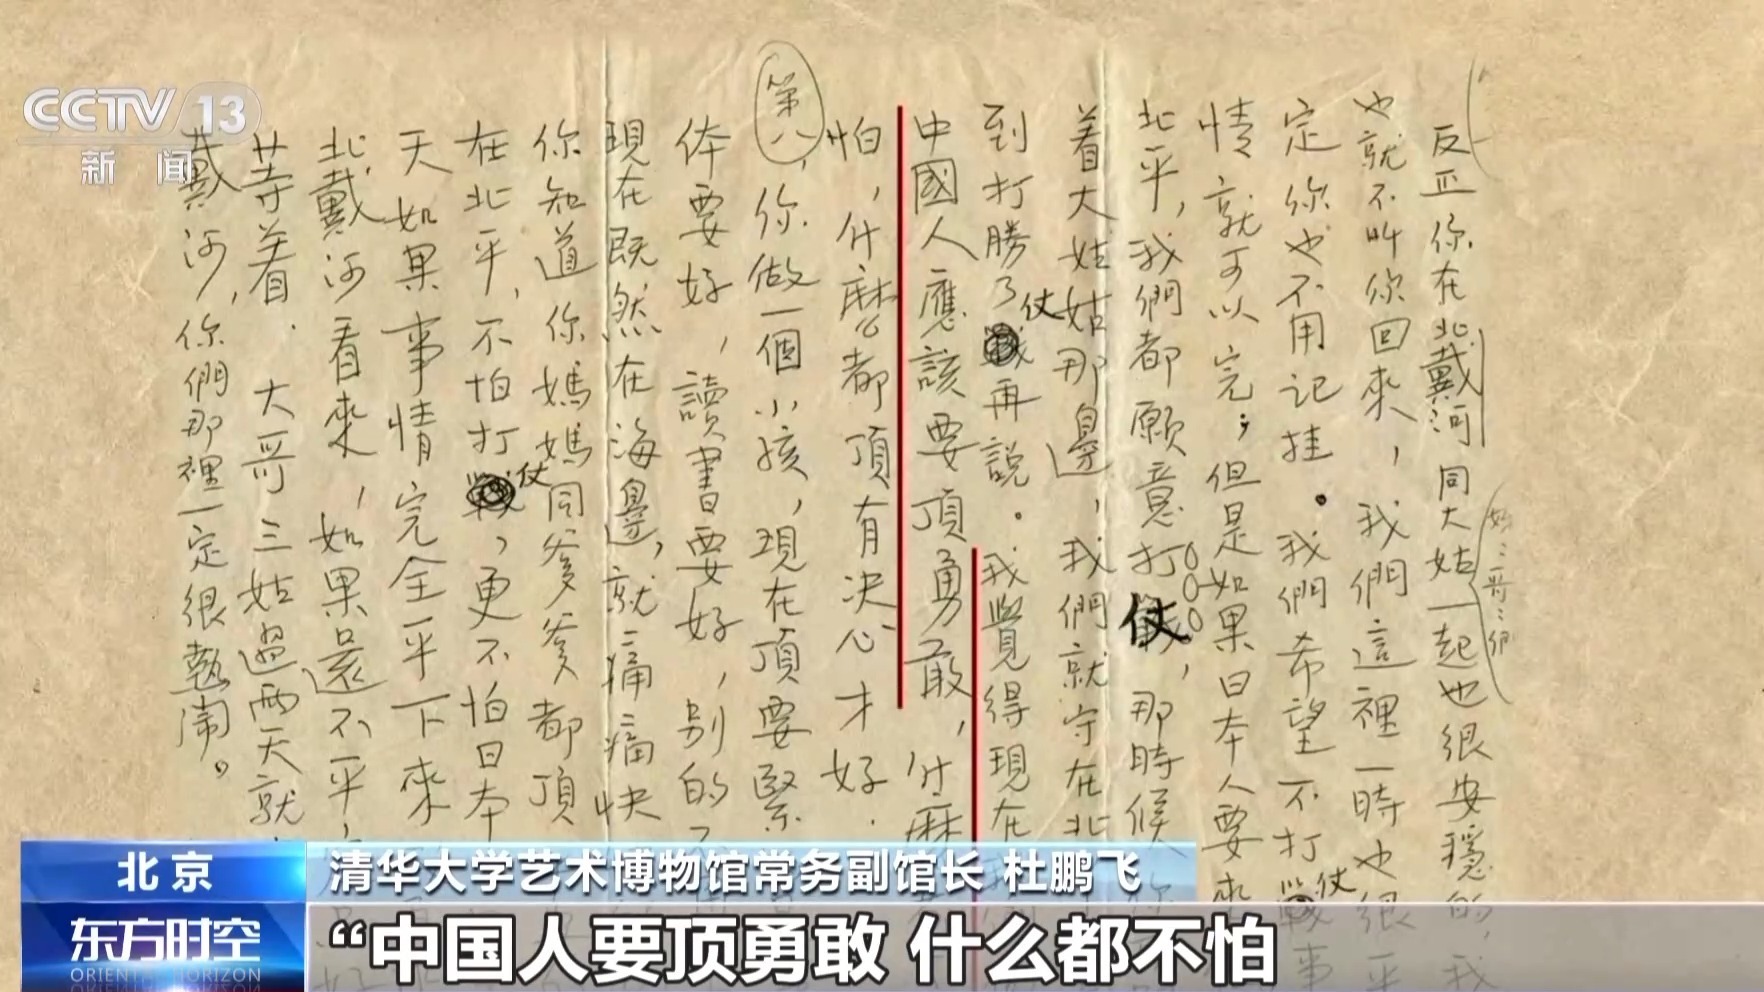 CCTV 13
新闻
反正你在北戴河同大姑一起也很安穩的,我
也就不叫你回來,我們這裡一時也很平
定你也不用记挂。我們希望不打仗事
情就可以完;但是如果日本人要來
北平,我們都願意打仗,那時候你
着大姑姑那邊,我們就守在北
到打勝了仗再說。我覺得現在我
中國人應該要頂勇敢,什麼
怕,什麼都頂有决心才好.
第八,你做一個小孩,現在頂要緊
体要好,讀書要好,別的不
現在既然在海邊,就痛痛快
你知道你媽媽同爹爹都頂
在北平,不怕打仗,更不怕日本
天如果事情完全平下來
北戴河看來,如果還不平
等着.大哥三姑過兩天就
戴河,你們那裡一定很熱鬧。
北京
清华大学艺术博物馆常务副馆长 杜鹏飞
东方时空
ORIENTAL HORIZON
“中国人要顶勇敢 什么都不怕